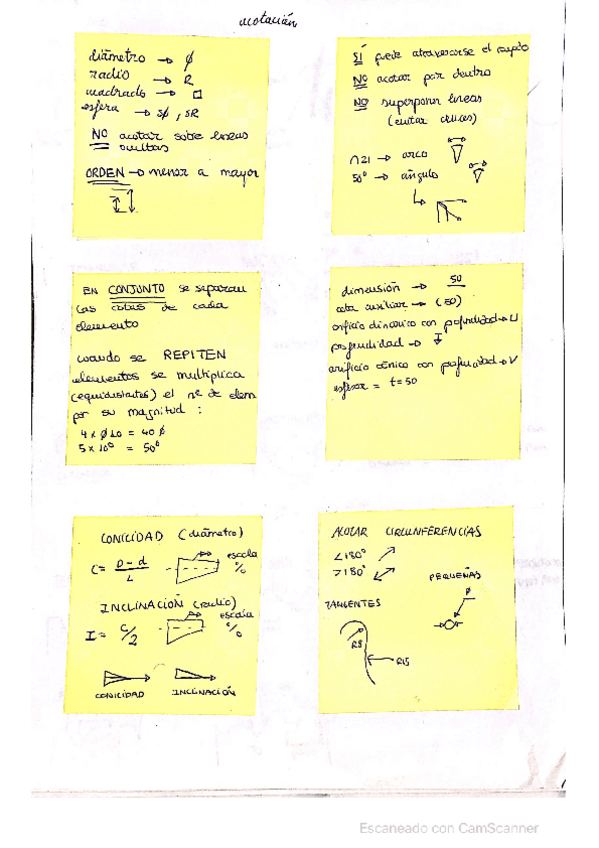 acotación
diámetro → Ø
radio → R
cuadrado → □
esfera → SØ, SR
NO acotar sobre líneas
ocultas
ORDEN → menor a mayor
SÍ puede atravesarse el
NO acotar por dentro
NO superponer líneas
(evitar cruces)
∩21 → arco
50° → ángulo
EN CONJUNTO se separan
las cotas de cada
elemento
cuando se REPITEN
elementos se multiplica
(equidistantes) el nº de elem
por su magnitud:
4 x Ø10 = 40 Ø
5 x 10° = 50°
dimensión → 50
cota auxiliar → (50)
orificio cilíndrico con profundidad → ⊔
profundidad → ↧
orificio cónico con profundidad → V
espesor = t=50
CONICIDAD (diámetro)
C = D - d / L
escala
%
INCLINACIÓN (radio)
escala
I = C/2
%
CONICIDAD INCLINACIÓN
ACOTAR CIRCUNFERENCIAS
<180°
>180°
PEQUEÑAS
Ø
TANGENTES
R8
R15
Escaneado con CamScanner